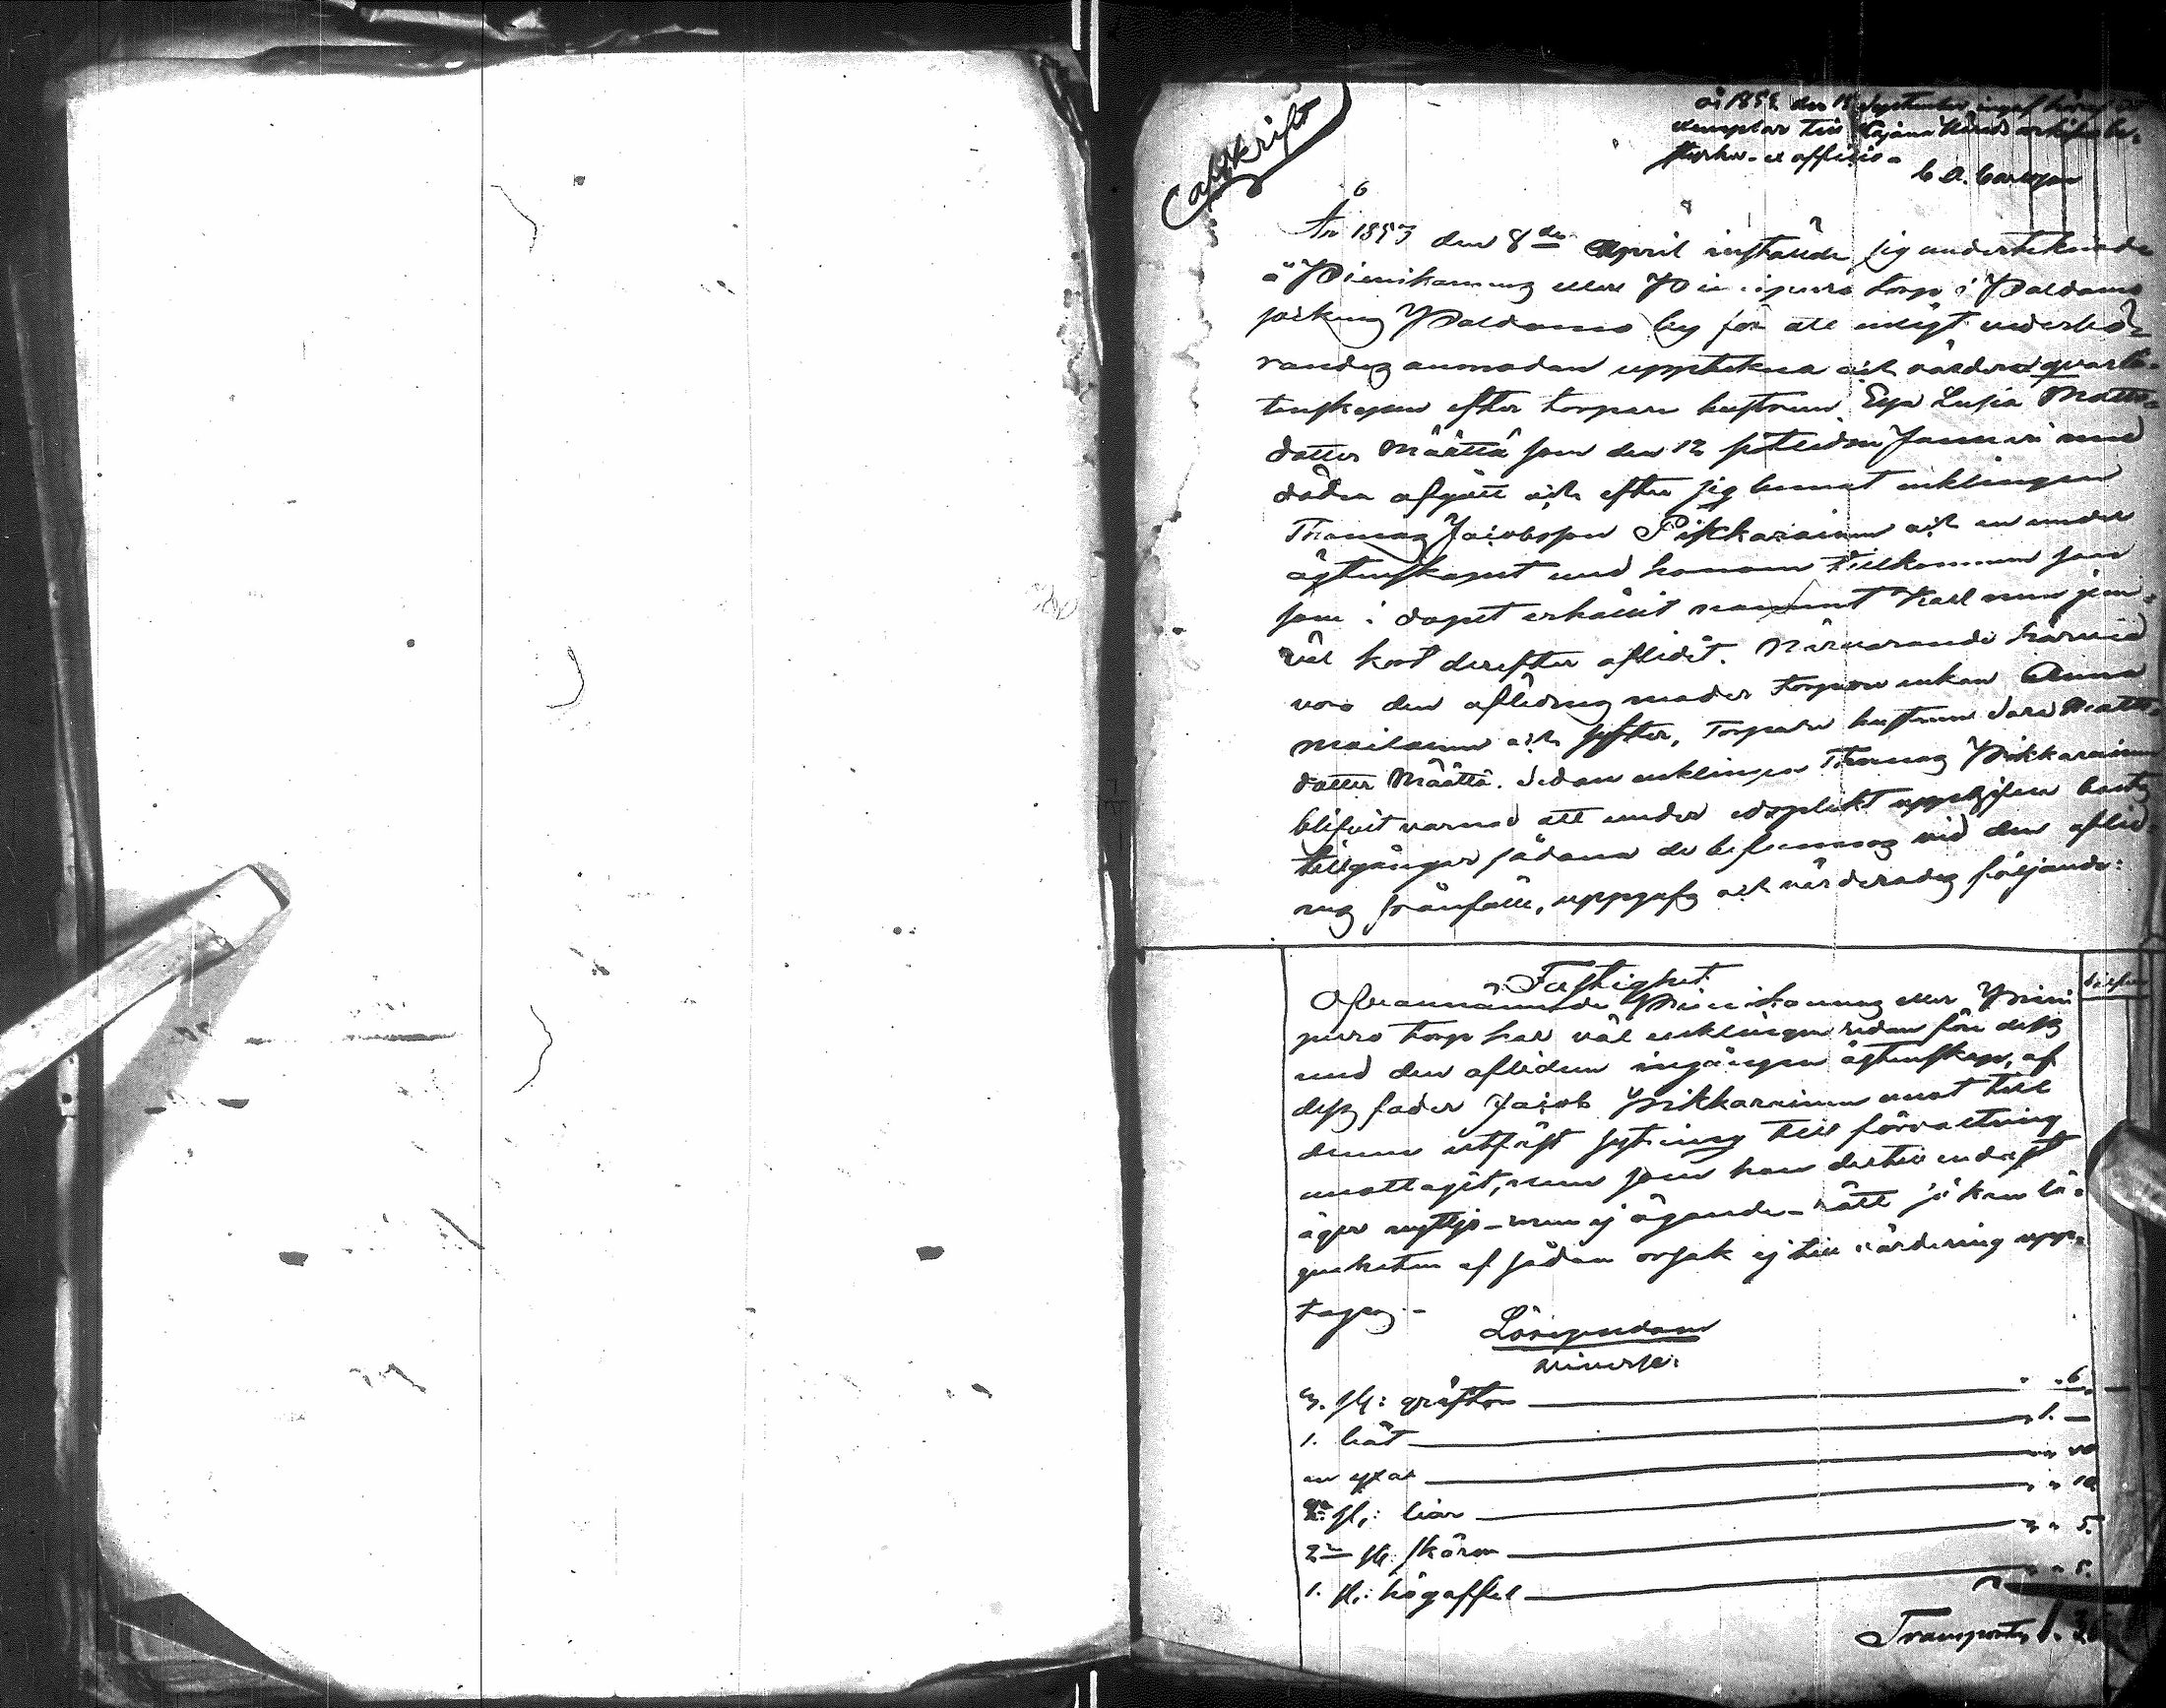 Afskrift
år 1853 den 19 September ingaf häraf ett
exemplar till Kajana Härads arkif be-
styrker - ex officio -
C. A. Carlogren
6
År 1853 den 8de April instälde sig undertecknade
å Pienikangas eller Pienipuro torp i Paldamo
socken Paldamo by för att enligt vederbö-
randes anmodan uppteckna och värdera qvarlå-
tenskapen efter torpare hustrun Eva Lusia Matts-
dotter Määttä som den 12 sistleden Januari med
döden afgått och efter sig lemnat enklingen
Thomas Jacobsson Pikkarainen och en under
ägtenskapet med honom tillkommen son
som i dopet erhållit namnet Karl men jem-
väl kort derefter aflidit. Närvarande härvid
voro den aflidnes moder torpare enkan Anna
Moilainen och syster, Torpare hustrun Sara Matts-
dotter Määttä. Sedan enklingen Thomas Pikkarainen
blifvit varnad att under edsplikt uppgifva boets
tillgångar sådana de befunnos vid den aflid-
nes frånfälle, uppgafs och värderades följande:
Fastighet
Ofvannämnde Pienikangas eller Pieni
puro torp har väl enklingen redan före dess
med den aflidna ingångna ägtenskap, af
dess fader Jacob Pikkarainen emot till
denne utfäst sytning till förvaltning
emottagit, men som han dertill endast
äger nyttjo- men ej ägande-rätt så kan lä-
genheten af sådan orsak ej till värdering upp-
tagas. -
Lösegendom
diverse:
3. st: gräftor " " 6.
1. båt " 1. —
en yxa " "
st: liar " " 10
2ne st: skäror " " 5.
1. st: högaffel " " 5.
Transport